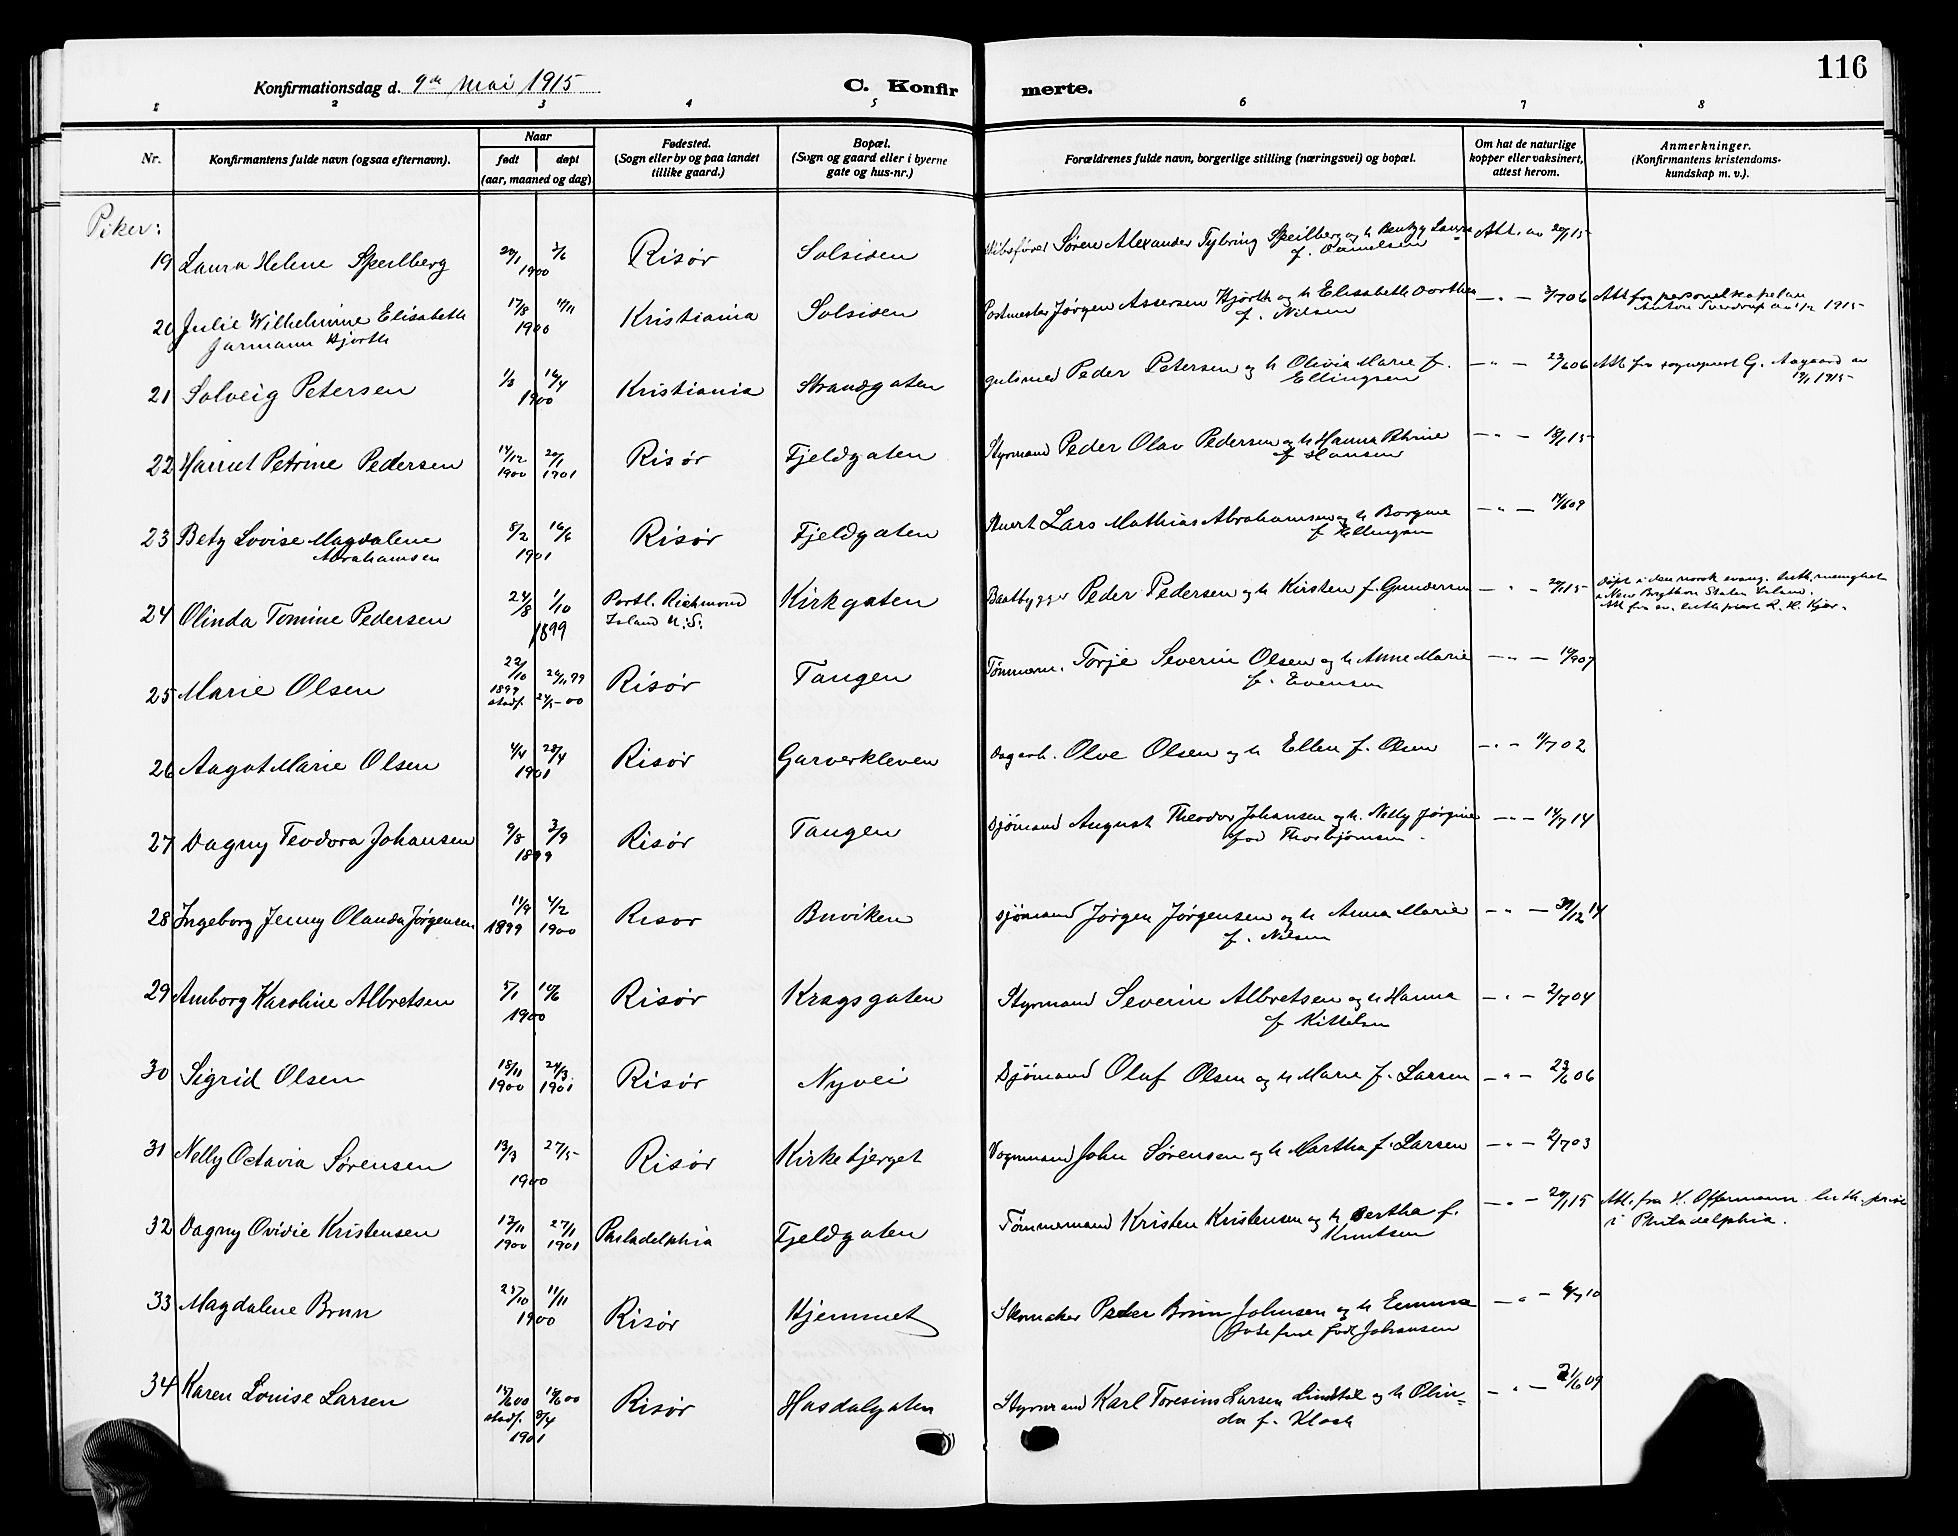 116
Konfirmationsdag d. 9de Mai 1915
C. Konfirmerte.
1 2 3 4 5 6 7 8
Nr.
Konfirmantens fulde navn (ogsaa efternavn).
Naar
født døpt
(aar, maaned og dag)
Fødested.
(Sogn eller by og paa landet
tillike gaard.)
Bopæl.
(Sogn og gaard eller i byerne
gate og hus-nr.)
Forældrenes fulde navn, borgerlige stilling (næringsvei) og bopæl.
Om hat de naturlige
kopper eller vaksinert,
attest herom.
Anmerkninger.
(Konfirmantens kristendoms-
kundskap m. v.).
Piker:
19 Laura Helene Speilberg 1900 Risør Solsiden Søren Alexander Tybring Speilberg og h Laura
f. Danielsen
20 Julie Wilhelmine Elisabeth 17/8 1900 Kristiania Solsiden Postmester Jørgen Assersen Hjorth og h Elisabeth Dorthea — " — 2/7 06 Att fra personelkapelan
Jarmann Hjorth f. Nilsen Anton 1915
21 Solveig Petersen 16/4 1900 Kristiania Strandgaten gulsmed Peder Petersen og h Olivia Marie f. — " — 23/6 06 Att fra sogneprest G. Aagaard av
Ellingsen 1915
22 Harriet Petrine Pedersen 14/12 1900 20/1 1901 Risør Fjeldgaten Styrmand Peder Olav Pedersen og h Hanna Petrine — " — 18/1 15
f Hansen
23 Bety Lovise Magdalene 8/2 16/6 1901 Risør Fjeldgaten Lars Mathias Abrahamsen og h Borgine — " — 09
Abrahamsen f Ellingsen
24 Olinda Tomine Pedersen 24/8 1/10 1899 Portl. Richmond Kirkgaten Baatbygger Peder Pedersen og h Kirsten f. Gundersen — " — 15 Døpt i den norsk evang. luth. menighet
Island U. S. i New Brighton Staten Island.
25 Marie Olsen 22/10 1899 24/11 99 Risør Tangen Tømmerm. Torje Severin Olsen og h Anne Marie — " — 07
stadf. 24/5-00 f. Evensen
26 Aagot Marie Olsen 4/4 28/4 1901 Risør Garverkleven Dagarb. Olve Olsen og h Ellen f. Olsen — " — 11/7 02
27 Dagny Teodora Johansen 9/8 3/9 1899 Risør Tangen Sjømand August Theodor Johansen og h. Nelly Jørgine — " — 14/7 14
fød Thorbjørnsen.
28 Ingeborg Jenny Olanda Jørgensen 1899 4/2 1900 Risør Buviken Sjømand Jørgen Jørgensen og h Anna Marie — " — 30/12 14
f. Nilsen
29 Amborg Karoline Albretsen 5/1 1900 Risør Kragsgaten Styrmand Severin Albretsen og h Hanna — " — 2/7 04
f Kittelsen
30 Sigrid Olsen 18/11 1900 24/3 1901 Risør Nyvei Sjømand Oluf Olsen og h Marie f. Larsen — " — 23/6 06
31 Nelly Octavia Sørensen 13/3 27/5 1900 Risør Kirkebjerget Vognmand John Sørensen og h Martha f. Larsen — " — 2/7 03
32 Dagny Ovidie Kristensen 1900 27/1 1901 Philadelphia Fjeldgaten Tømmermand Kristen Kristensen og h Bertha f. — " — 15 Att. fra H. Offermann luth. prest
Knutsen i Philadelphia.
33 Magdalene Brun 25/10 11/11 1900 Risør Hjemmet Skomaker Peder Brun Johnsen og h Emma — " — 6/7 10
Josefine født Johansen
34 Karen Lovise Larsen Risør Hasdalgaten Styrmand Karl Toresius Larsen Lindstøl og h Olin- — " — 09
stadf. 8/4 1901 da f. Klock